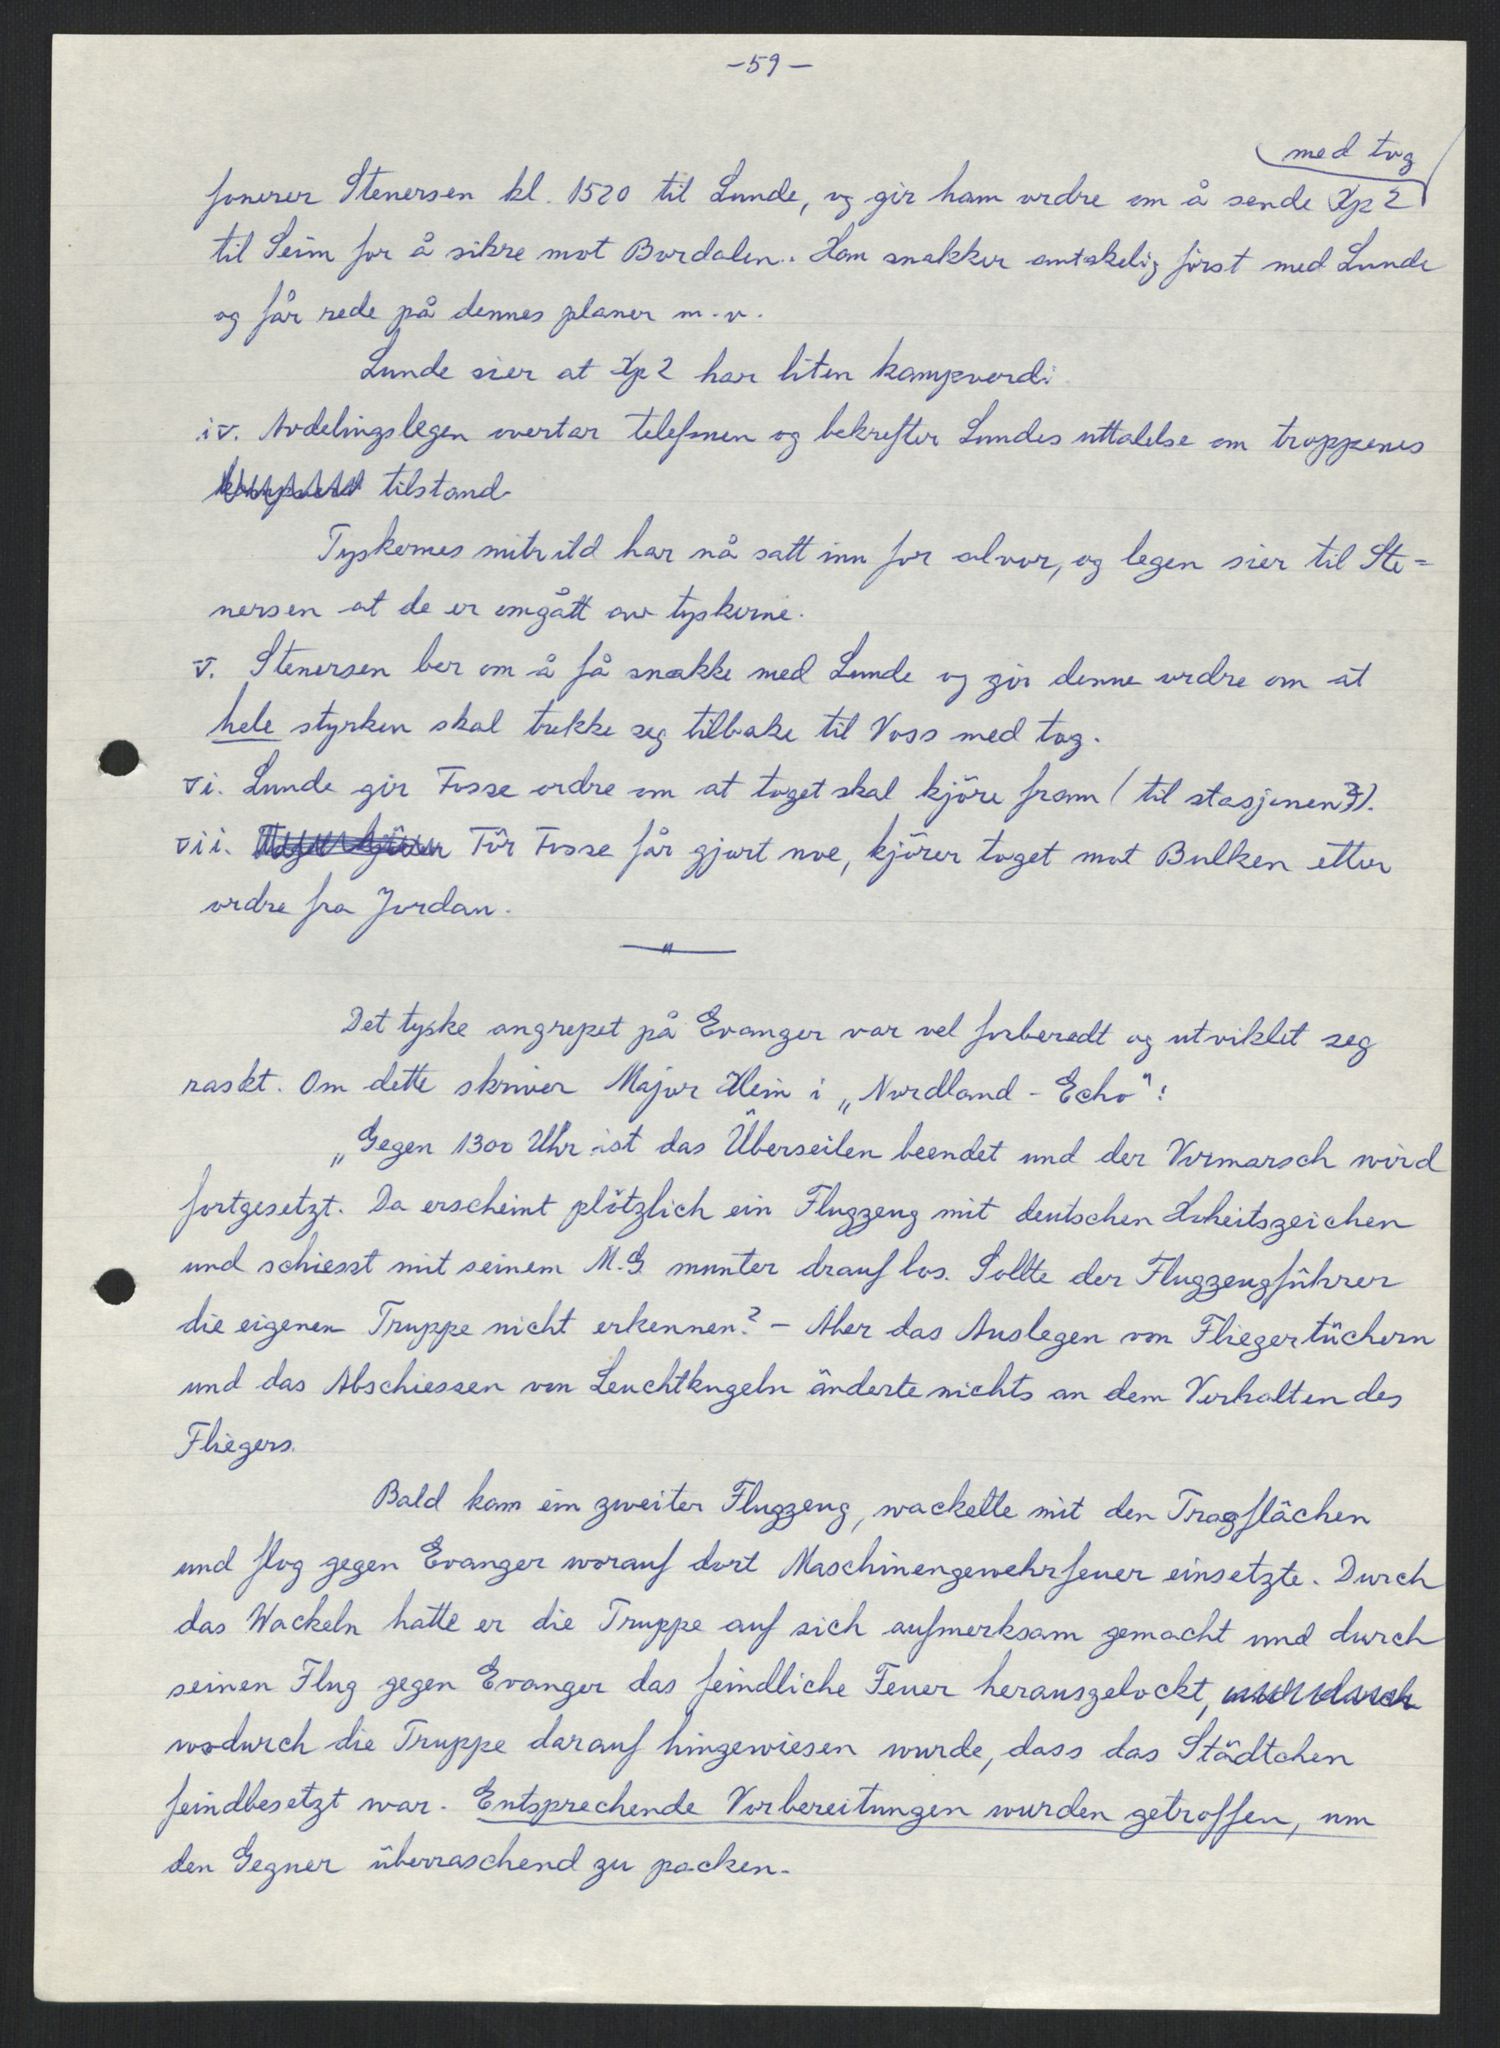 -59-
med tog
fonerer Stenersen kl. 1520 til Lunde, og gir ham ordre om å sende Kp 2
til Seim for å sikre mot Bordalen. Han snakker antakelig först med Lunde
og får rede på dennes planer m.v.
Lunde sier at Kp 2 har liten kampverdi.
iv. Avdelingslegen overtar telefonen og bekrefter Lundes uttalelse om troppenes
tilstand.
Tyskernes mitr.ild har nå satt inn for alvor, og legen sier til Ste=
nersen at de er omgått av tyskerne.
v. Stenersen ber om å få snakke med Lunde og gir denne ordre om at
hele styrken skal trekke seg tilbake til Voss med tog.
vi. Lunde gir Fosse ordre om at toget skal kjöre fram (til stasjonen?).
vii. För Fosse får gjort noe, kjörer toget mot Bulken etter
ordre fra Jordan.
— " —
Det tyske angrepet på Evanger var vel forberedt og utviklet seg
raskt. Om dette skriver Major Klein i „Nordland - Echo":
„Gegen 1300 Uhr ist das Überseilen beendet und der Vormarsch wird
fortgesetzt. Da erscheint plötzlich ein Flugzeug mit deutschen Hoheitszeichen
und schiesst mit seinem M.G. munter drauf los. Sollte der Flugzeugführer
die eigenen Truppe nicht erkennen? - Aber das Auslegen von Fliegertüchern
und das Abschiessen von Leuchtkugeln änderte nichts an dem Verhalten des
Fliegers.
Bald kam ein zweiter Flugzeug, wackelte mit den Tragflächen
und flog gegen Evanger worauf dort Maschinengewehrfeuer einsetzte. Durch
das Wackeln hatte er die Truppe auf sich aufmerksam gemacht und durch
seinen Flug gegen Evanger das feindliche Feuer herausgelockt,
wodurch die Truppe darauf hingewiesen wurde, dass das Städtchen
feindbesetzt war. Entsprechende Vorbereitungen wurden getroffen, um
den Gegner überraschend zu packen.